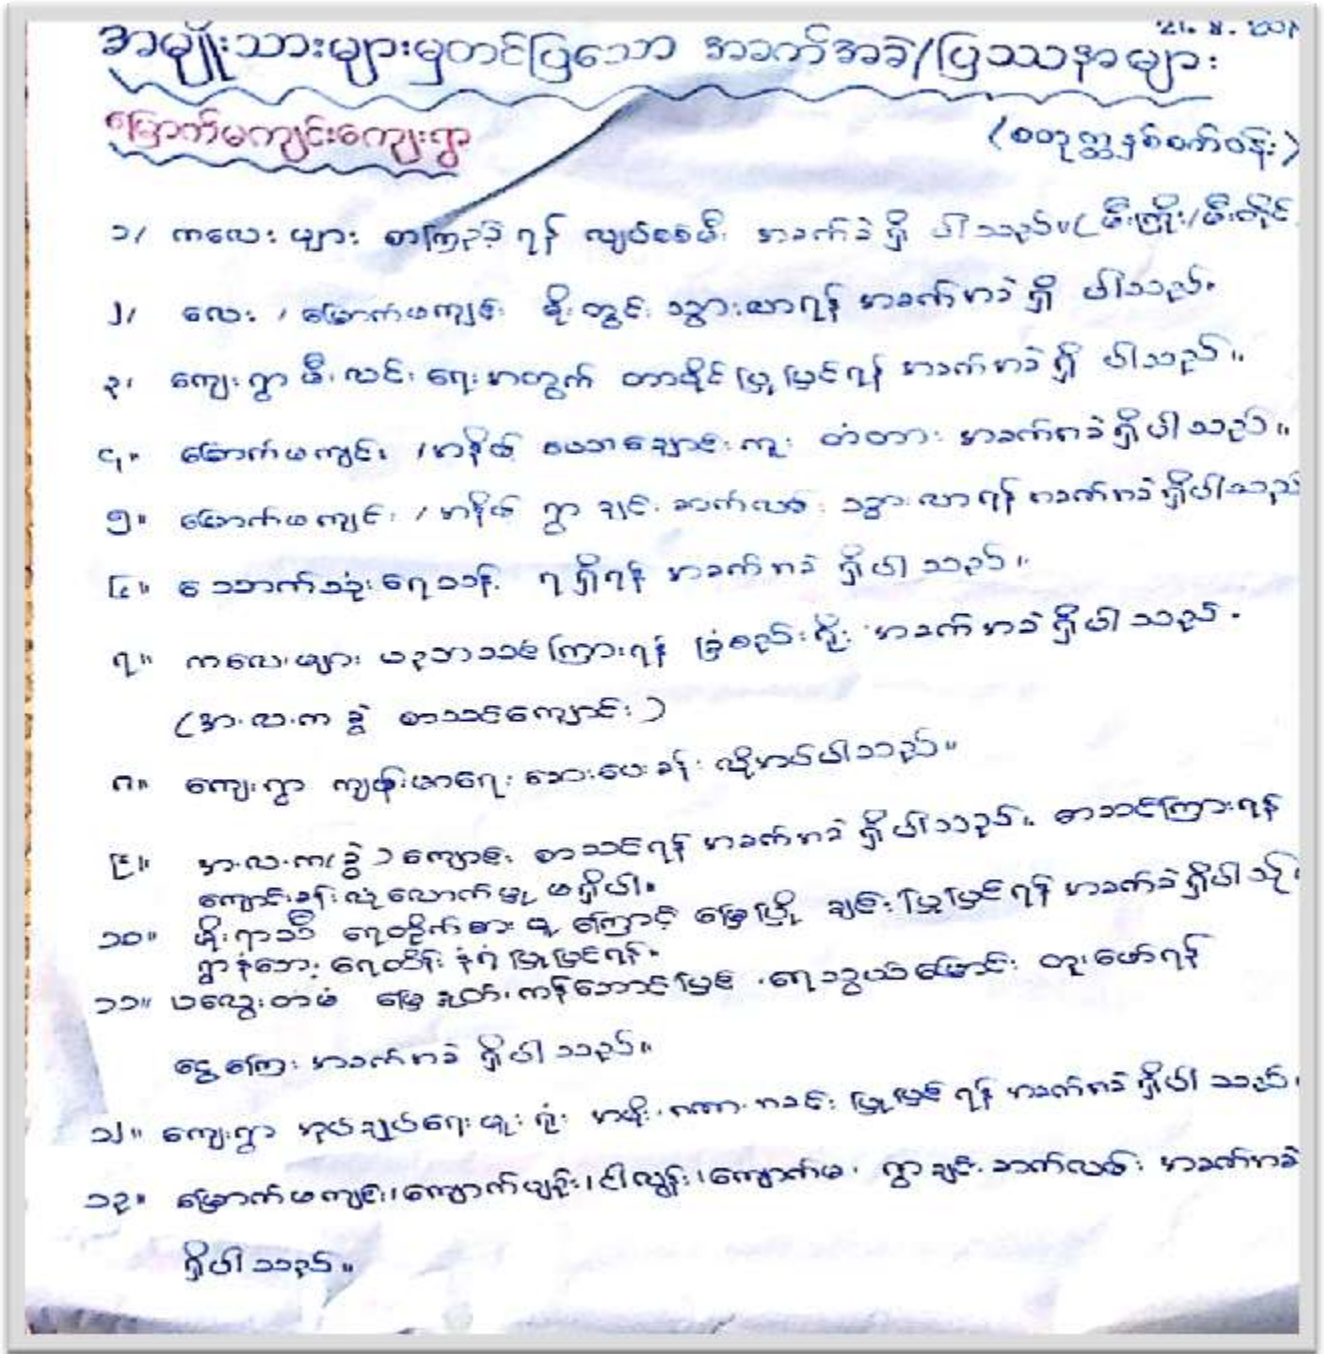 21.8.201
အမျိုးသားများမှတင်ပြသော အခက်အခဲ/ပြဿနာများ
မြောက်မကျင်းကျေးရွာ
(စတုတ္ထနှစ်စက်ဝန်း)
၁/ ကလေးများ စာကြည့်ရန် လျှပ်စစ်မီး အခက်ခဲရှိ ပါသည်။(မီးကြိုး/မီးတိုင်
၂/ လေး / မြောက်မကျင်း မိုးတွင်း သွားလာရန် အခက်အခဲ ရှိ ပါသည်။
၃၊ ကျေးရွာ မီးလင်းရေးအတွက် တာပိုင် ပြုပြင်ရန် အခက်အခဲ ရှိ ပါသည်။
၄။ မြောက်မကျင်း /အနိမ့် ချောင်းကူး တံတား အခက်အခဲရှိပါသည်။
၅။ မြောက်မကျင်း / အနိမ့် ရွာချင်းဆက်လမ်း သွားလာရန် အခက်အခဲရှိပါသည်
၆။ သောက်သုံးရေသန့် ရရှိရန် အခက်အခဲ ရှိပါသည်။
၇။ ကလေးများ ပညာသင်ကြားရန် ခြံစည်းရိုး အခက်အခဲရှိပါသည်။
(အ.လ.က ခွဲ စာသင်ကျောင်း)
၈။ ကျေးရွာ ကျန်းမာရေး ဆေးပေးခန်း လိုအပ်ပါသည်။
၉။ အ.လ.က(ခွဲ)ကျောင်း စာသင်ရန် အခက်အခဲ ရှိပါသည်။ စာသင်ကြားရန်
ကျောင်းခန်းလုံလောက်မှု မရှိပါ။
၁၀။ မိုးရာသီ ရေတိုက်စားမှုကြောင့် မြေပြို ချင်းပြုပြင်ရန် အခက်ခဲရှိပါသ
ရွာနံဘေး ရေထိန်းနံရံပြုပြင်ရန်။
၁၁။ ပလွေးတမံ မြေ ကန်ဘောင်မြှင့် ရေသွယ်မြောင်း တူးဖော်ရန်
ငွေကြေး အခက်အခဲ ရှိပါသည်။
၁၂။ ကျေးရွာ အုပ်ချုပ်ရေးမှူးရုံး အမိုး၊ကာ၊အခင်း ပြုပြင်ရန် အခက်အခဲရှိပါသည်။
၁၃။ မြောက်မကျင်း၊ကျောက်မျဉ်း၊ငါလွန်း၊ကျောက်မ၊ ရွာချင်းဆက်လမ်း အခက်အခဲ
ရှိပါသည်။